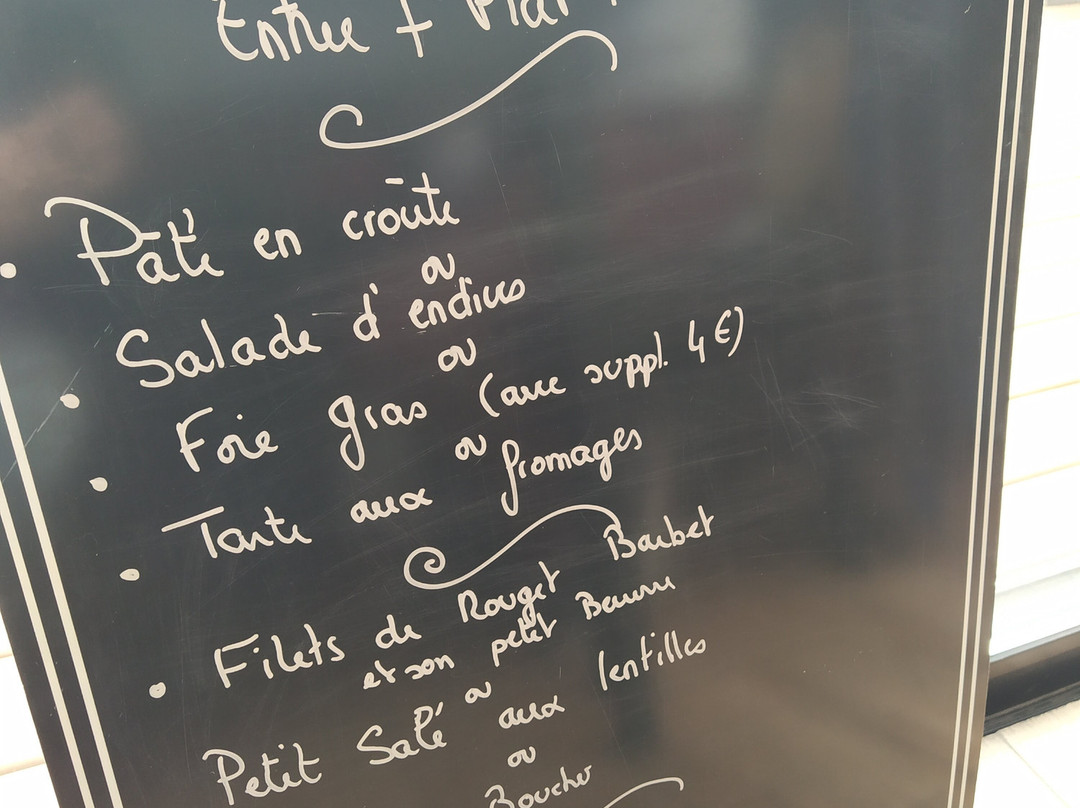 Entrée + Plat
Pâté en croûte
ou
Salade d'endives
ou
Foie gras (avec suppl. 4€)
ou
Tarte aux fromages
Filets de Rouget Barbet
et son petit Beurre
ou
Petit Salé aux lentilles
ou
Boucher